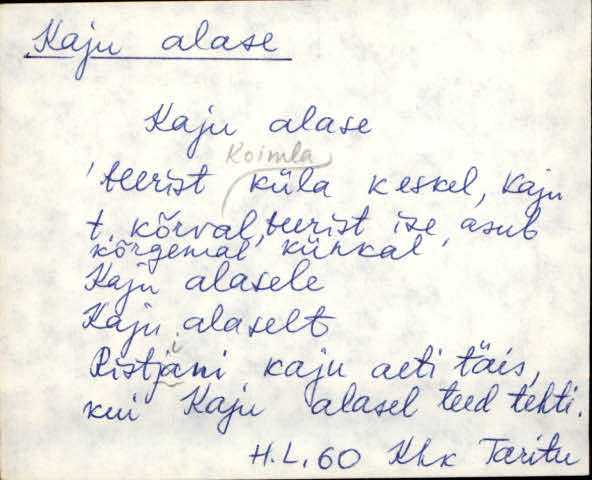 Kaju alase
Kaju alase
Koimla
'teerist küla keskel, Kaju
t. kõrval, teerist ise, asub
kõrgemal künkal
Kaju alasele
Kaju alaselt
Ristjäni kaju aeti täis,
kui Kaju alasel teed tehti.
H.L. 60 Khk Taritu